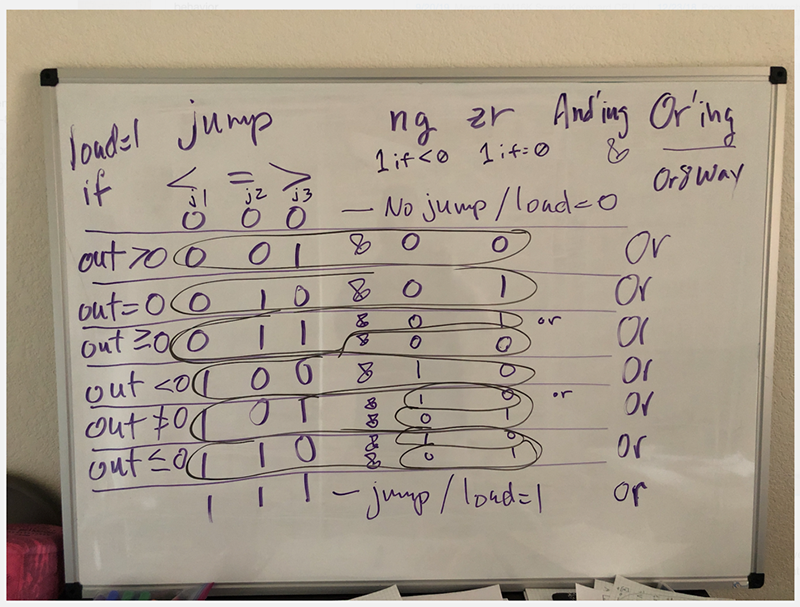 load=1 jump ng zr And'ing Or'ing
if < = > 1 if <0 1 if =0 & Or8Way
j1 j2 j3
0 0 0 — No jump / load=0
out >0 0 0 1 & 0 0 Or
out =0 0 1 0 & 0 1 Or
& 0 1 or
out ≥0 0 1 1 & 0 0 Or
out <0 1 0 0 & 1 0 Or
& 1 0 or
out ≠0 1 0 1 & 0 1 Or
& 1 0
out ≤0 1 1 0 & 0 1 Or
1 1 1 — jump / load=1 Or